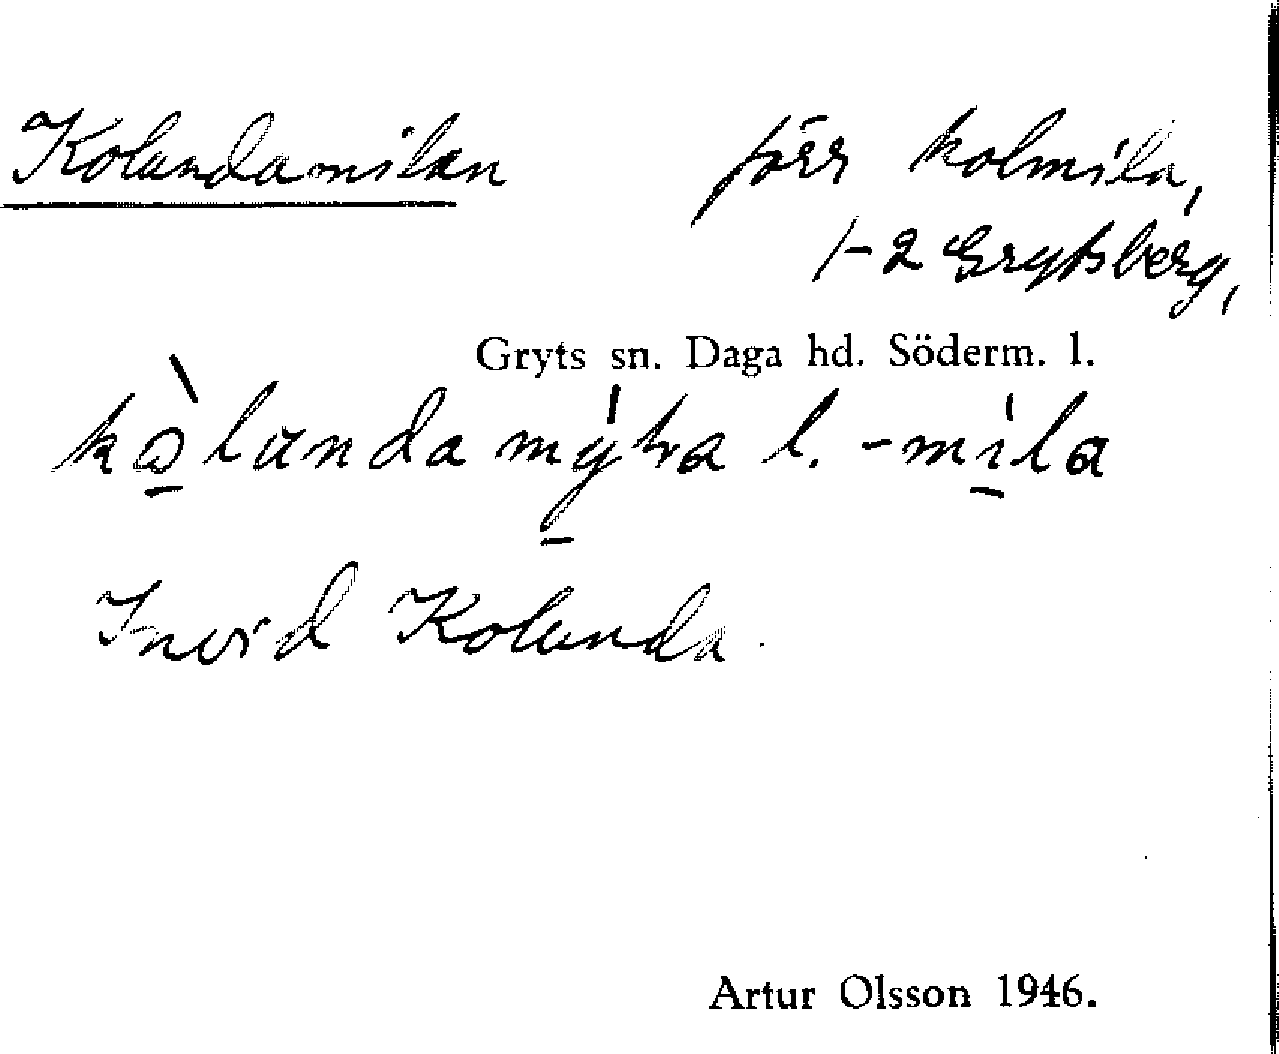 Kolundamilan förr kolmila,
1-2 Grytsberg,
Gryts sn. Daga hd. Söderm. l.
kòlunda mýra l. -míla
Invid Kolunda.
Artur Olsson 1946.